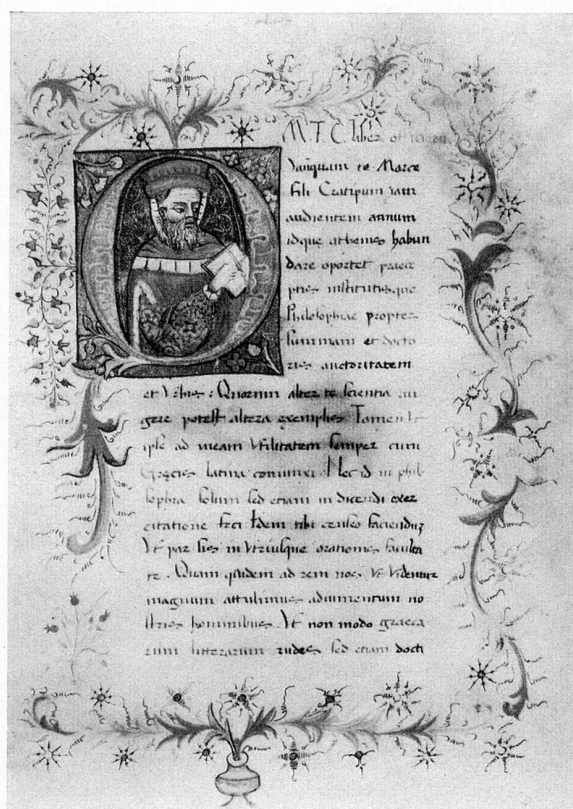 M. T. C. liber of
QVanquam te Marce
fili Cratipum iam
audientem annum
idque athenis habun
dare oportet praece
ptis institutisque
Philosophiae propter
summam et docto
ris auctoritatem
et Vrbis : Quorum alter te scientia au
gere potest altera exemplis Tamen Vt
ipse ad meam Vtilitatem semper cum
Grecis latina coniunxi Nec id in phil
sophia solum sed etiam in dicendi exer
citatione feci Idem tibi censeo faciendum
Vt par sis in Vtriusque orationis faculta
te . Quam quidem ad rem nos Vt Videmur
magnum attulimus adiumentum no
stris hominibus Vt non modo graeca
rum litterarum rudes sed etiam docti